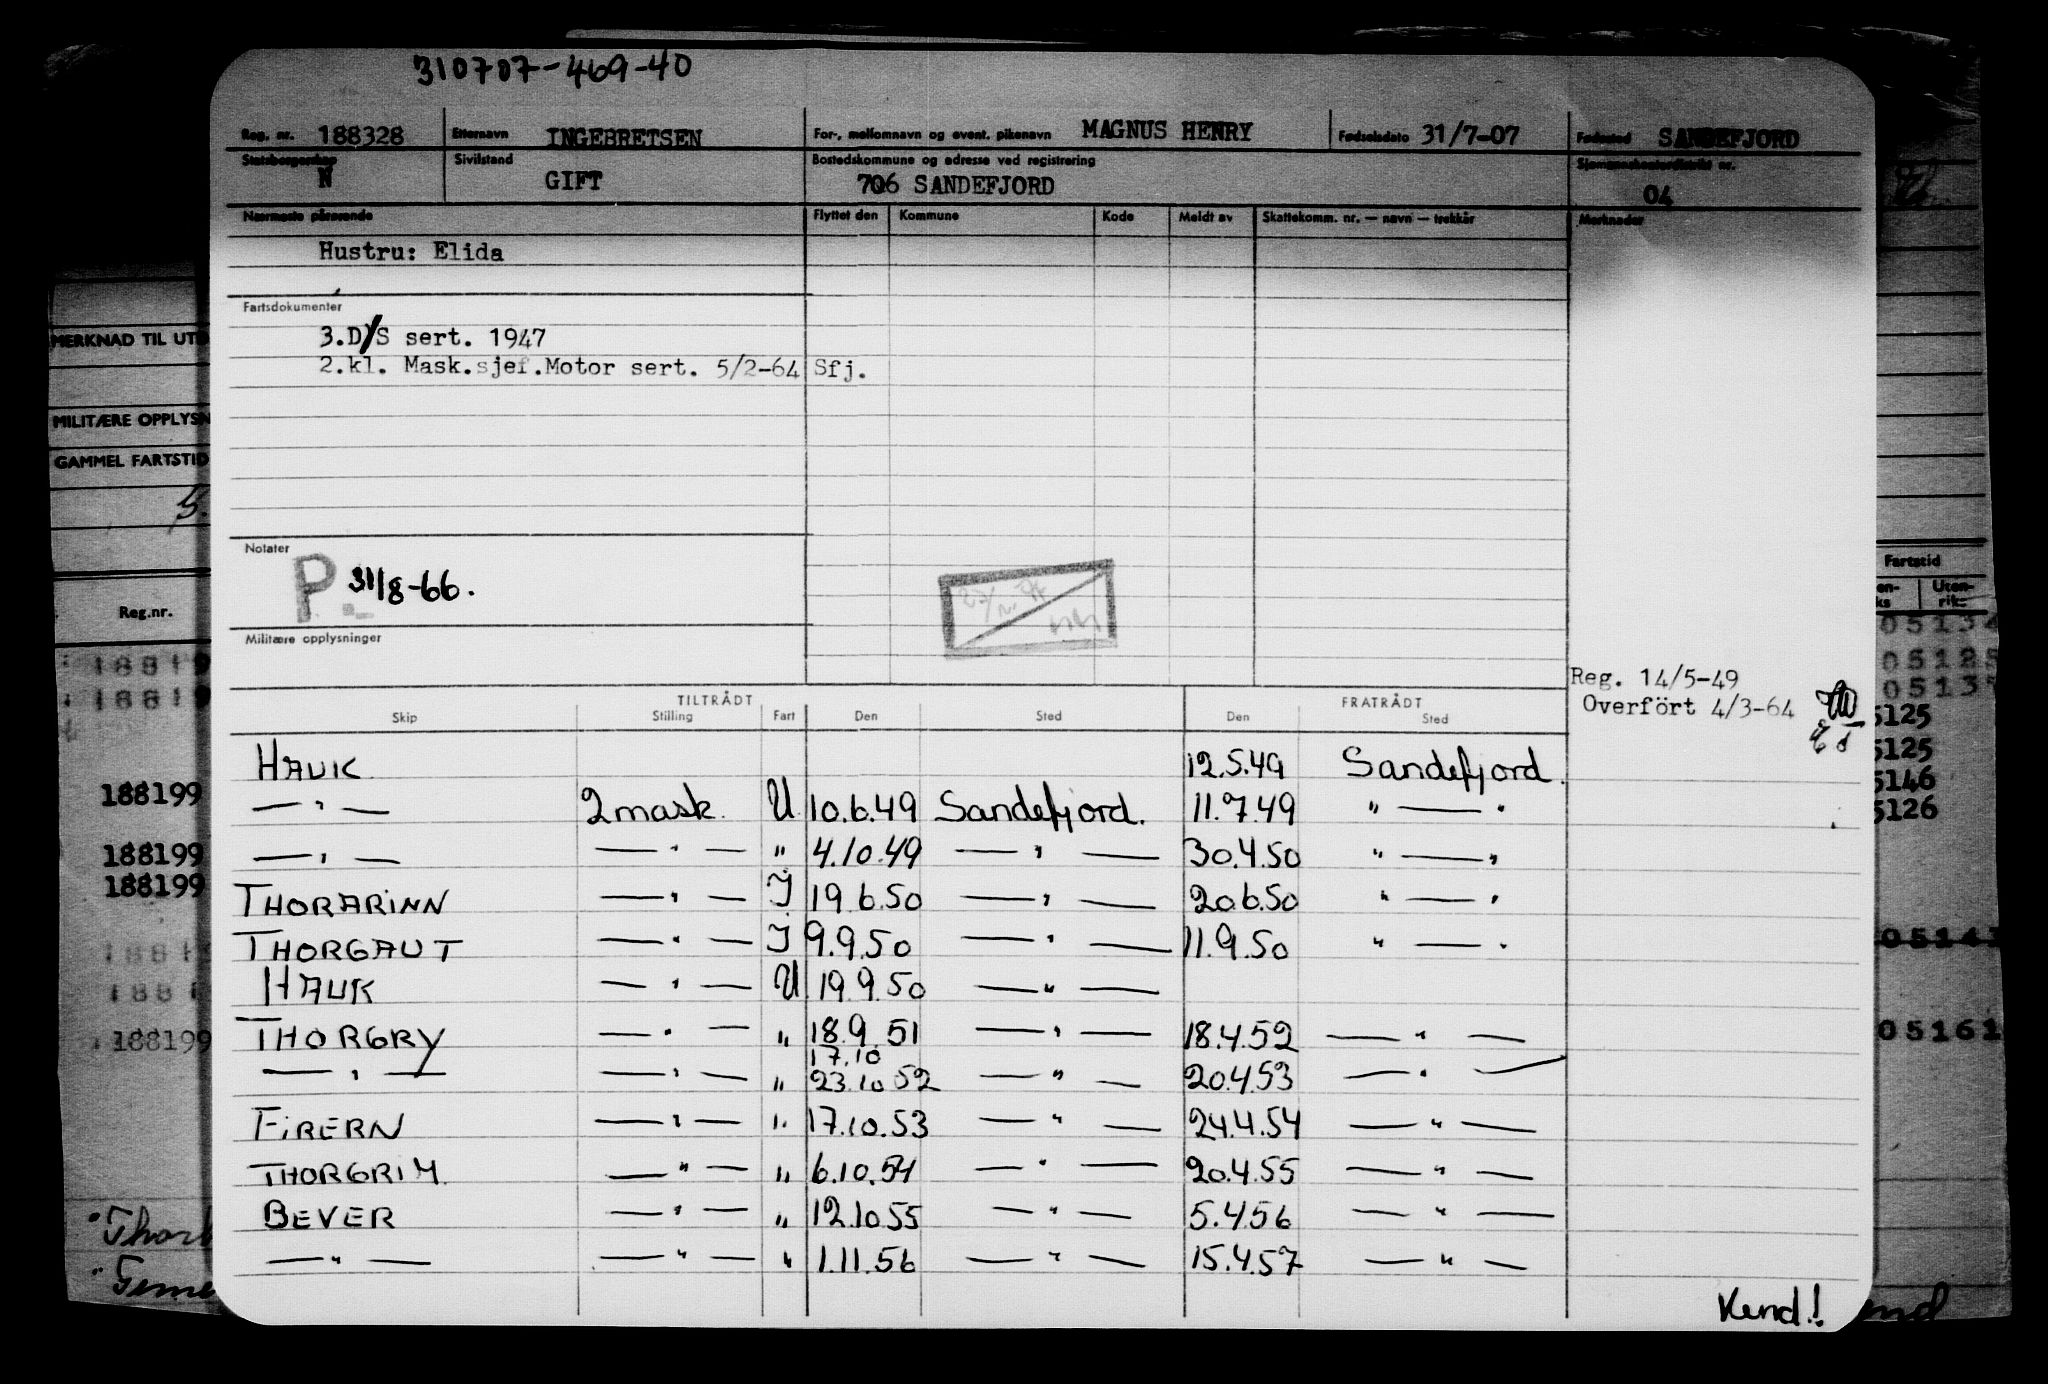 310707-469-40
Reg. nr. 188328 Etternavn INGEBRETSEN For-, mellomnavn og event. pikenavn MAGNUS HENRY Fødselsdato 31/7-07 Fødested SANDEFJORD
Statsborgerskap N Sivilstand GIFT Bostedskommune og adresse ved registrering 706 SANDEFJORD 04
Nærmeste pårørende Flyttet den Kommune Kode Meldt av Skattekomm. nr. — navn — trekkår Merknader
Hustru: Elida
Fartsdokumenter
3.D/S sert. 1947
2.kl. Mask.sjef.Motor sert. 5/2-64 Sfj.
Notater
P 31/8-66.
Militære opplysninger
Reg. 14/5-49
Overfört 4/3-64
TILTRÅDT FRATRÅDT
Skip Stilling Fart Den Sted Den Sted
HAUK 12.5.49 Sandefjord.
— " — 2 mask. U 10.6.49 Sandefjord. 11.7.49 " — "
— " — — " — " 4.10.49 — " — 30.4.50 " — "
THORARINN — " — I 19.6.50 — " — 20.6.50 " — "
THORGAUT — " — I 9.9.50 — " — 11.9.50 " — "
HAUK — " — U 19.9.50 — " —
THORGRY — " — " 18.9.51 — " — 18.4.52 — " —
17.10
— " — — " — " 23.10.52 — " — 20.4.53 — " —
FIRERN — " — " 17.10.53 — " — 24.4.54 — " —
THORGRIM — " — " 6.10.54 — " — 20.4.55 — " —
BEVER — " — " 12.10.55 — " — 5.4.56 — " —
— " — — " — " 1.11.56 — " — 15.4.57 — " —
Vend!
MERKNAD TIL
MILITÆRE OPPLYSN
GAMMEL FARTSTID
Reg.nr.
18819
18819
188199
188199
188199
188199
Fartstid
Uten-
rik-
05134
05125
5125
5125
5146
5126
05161